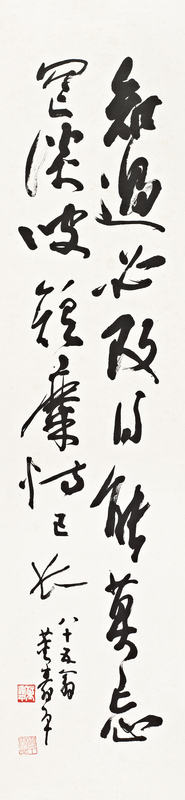 知過必改得能莫忘
罔談彼短靡恃己長
八十五翁
董壽平